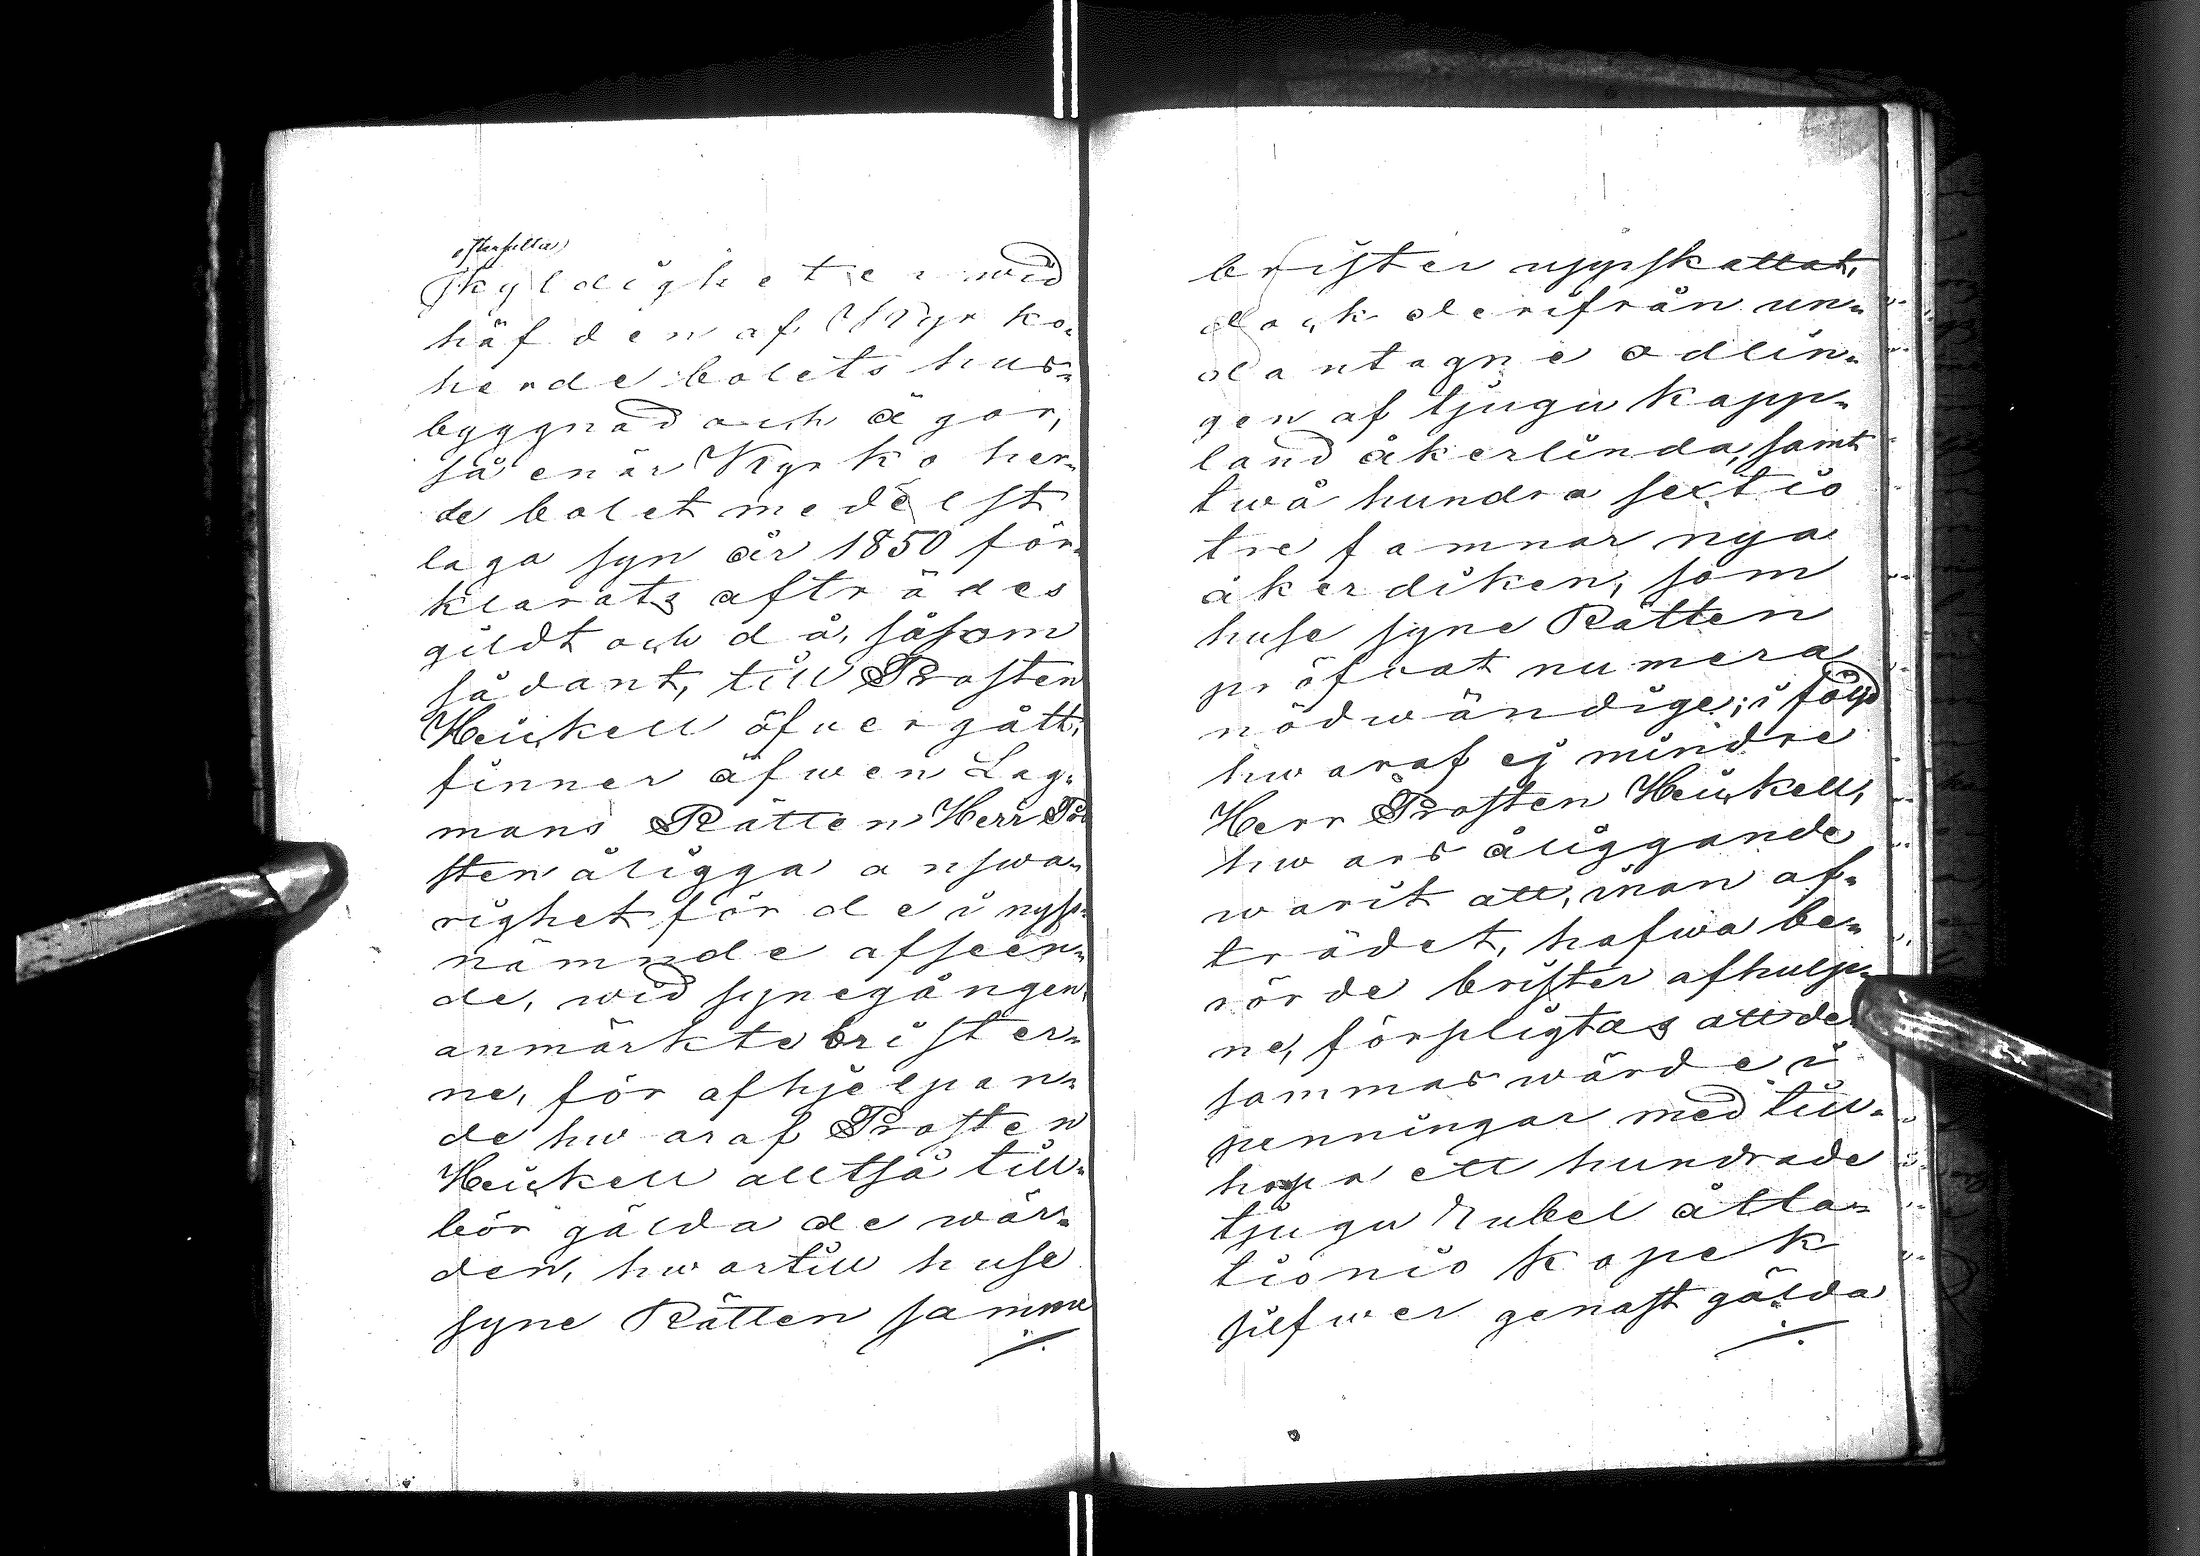 skyldigheter wid
häfden af Kyrko-
herdebolets hus-
byggnad och ägor,
så enär Kyrkoher-
debolet medelst
laga syn år 1850 för-
klarats afträdes
gildt och då, såsom
sådant, till Prosten
Heickell öfvergått;
finner äfwen Lag-
mans Rätten Herr Pro-
sten åligga answa-
righet för de i nyss-
nämnde afseen-
de, wid synegången
anmärkte brister-
ne, för afhjelpan-
de hwaraf Prosten
Heickell alltså till-
bör gälda de wär-
den, hwartill huse
syne Rätten samme
brister uppskattat,
dock derifrån un-
dantagne odlin-
gen af tjugu kapp-
land åkerlinda, samt
twå hundra sextio
tre famnar nya
åkerdiken, som
huse syne Rätten
pröfvat numera
nödwändige; i följd
hwaraf ej mindre
Herr Prosten Heickell,
hwars åliggande
warit att, innan af-
trädet, hafwa be-
rörde brister afhulpe-
ne, förpligtas att de
sammas wärde i
penningar med till-
hopa ett hundrade
tjugu rubel åtta-
tionio kopek
silfwer genast gälda